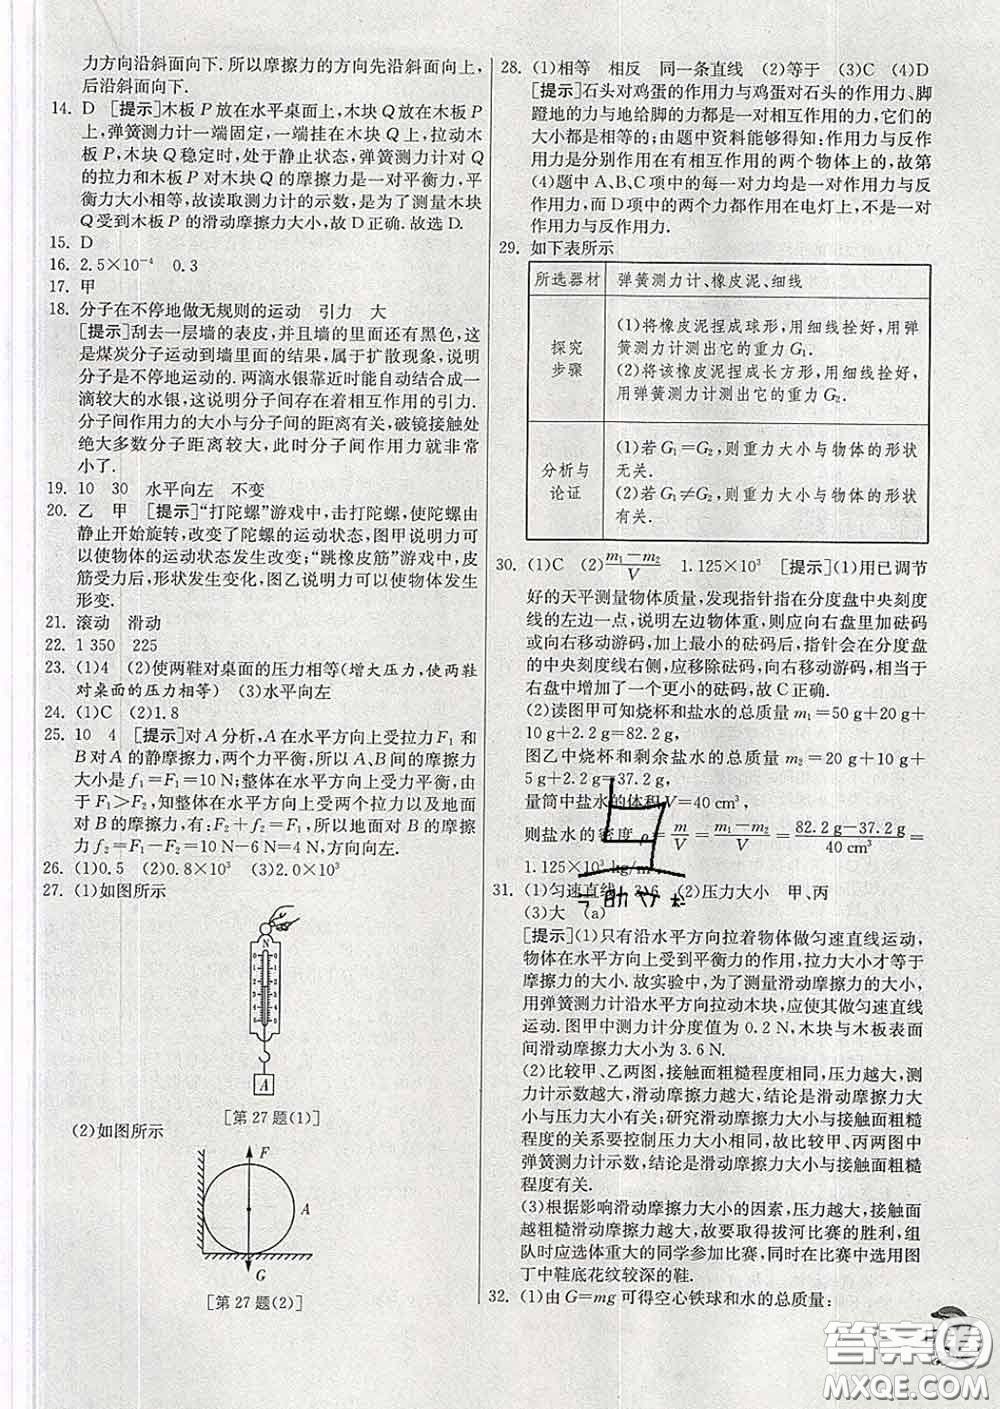 力方向沿斜面向下. 所以摩擦力的方向先沿斜面向上,
后沿斜面向下.
14. D [提示]木板 P 放在水平桌面上, 木块 Q 放在木板 P
上, 弹簧测力计一端固定, 一端挂在木块 Q 上, 拉动木
板 P, 木块 Q 稳定时, 处于静止状态, 弹簧测力计对 Q
的拉力和木板 P 对木块 Q 的摩擦力是一对平衡力, 平
衡力大小相等, 故读取测力计的示数, 是为了测量木块
Q 受到木板 P 的滑动摩擦力大小, 故 D 正确. 故选 D.
15. D
16. 2.5×10⁻⁴ 0.3
17. 甲
18. 分子在不停地做无规则的运动 引力 大
[提示]刮去一层墙的表皮, 并且墙的里面还有黑色, 这
是煤炭分子运动到墙里面的结果, 属于扩散现象, 说明
分子是不停地运动的. 两滴水银靠近时能自动结合成一
滴较大的水银, 这说明分子间存在着相互作用的引力.
分子间作用力的大小与分子间的距离有关, 破镜接触处
绝大多数分子距离较大, 此时分子间作用力就非常
小了.
19. 10 30 水平向左 不变
20. 乙 甲 [提示]“打陀螺”游戏中, 击打陀螺, 使陀螺由
静止开始旋转, 改变了陀螺的运动状态, 图甲说明力可
以使物体的运动状态发生改变; “跳橡皮筋”游戏中, 皮
筋受力后, 形状发生变化, 图乙说明力可以使物体发生
形变.
21. 滚动 滑动
22. 1 350 225
23. (1)4 (2)使两鞋对桌面的压力相等(增大压力, 使两鞋
对桌面的压力相等) (3)水平向左
24. (1)C (2)1.8
25. 10 4 [提示]对 A 分析, A 在水平方向上受拉力 F₁ 和
B 对 A 的静摩擦力, 两个力平衡, 所以 A、B 间的摩擦力
大小是 f₁=F₁=10 N; 整体在水平方向上受力平衡, 由
于 F₁>F₂, 知整体在水平方向上受两个拉力以及地面
对 B 的摩擦力, 有: F₂+f₂=F₁, 所以地面对 B 的摩擦
力 f₂=F₁-F₂=10 N-6 N=4 N, 方向向左.
26. (1)0.5 (2)0.8×10³ (3)2.0×10³
27. (1)如图所示
N
0 0
1 1
2 2
3 3
4 4
5 5
A
[第 27 题(1)]
(2)如图所示
F
A
G
[第 27 题(2)]
28. (1)相等 相反 同一条直线 (2)等于 (3)C (4)D
[提示]石头对鸡蛋的作用力与鸡蛋对石头的作用力、脚
蹬地的力与地给脚的力都是一对相互作用的力, 它们的
大小都是相等的; 由题中资料能够得知: 作用力与反作
用力是分别作用在有相互作用的两个物体上的, 故第
(4)题中 A、B、C 项中的每一对力均是作用力与反作
用力, 而 D 项中的两个力都作用在电灯上, 不是一对
作用力与反作用力.
29. 如下表所示
所选器材 弹簧测力计、橡皮泥、细线
探究
步骤
(1)将橡皮泥捏成球形, 用细线拴好, 用弹
簧测力计测出它的重力 G₁.
(2)将该橡皮泥捏成长方形, 用细线拴好,
用弹簧测力计测出它的重力 G₂.
分析与
论证
(1)若 G₁=G₂, 则重力大小与物体的形状
无关.
(2)若 G₁≠G₂, 则重力大小与物体的形状
有关.
30. (1)C (2)(m₁-m₂)/V 1.125×10³ [提示](1)用已调节
好的天平测量物体质量, 发现指针指在分度盘中央刻度
线的左边一点, 说明左边物体重, 则应向右盘里加砝码
或向右移动游码, 加上最小的砝码后, 指针会在分度盘
的中央刻度线右侧, 应移除砝码, 向右移动游码, 相当于
右盘中增加了一个更小的砝码, 故 C 正确.
(2)读图甲可知烧杯和盐水的总质量 m₁=50 g+20 g+
10 g+2.2 g=82.2 g,
图乙中烧杯和剩余盐水的总质量 m₂=20 g+10 g+
5 g+2.2 g=37.2 g,
量筒中盐水的体积 V=40 cm³,
则盐水的密度 ρ=m/V=(m₁-m₂)/V=(82.2 g-37.2 g)/40 cm³=
1.125×10³ kg/m³.
31. (1)匀速直线 3.6 (2)压力大小 甲、丙
(3)大 (a)
[提示](1)只有沿水平方向拉着物体做匀速直线运动,
物体在水平方向上受到平衡力的作用, 拉力大小才等于
摩擦力的大小. 故实验中, 为了测量滑动摩擦力的大小,
用弹簧测力计沿水平方向拉动木块, 应使其做匀速直线
运动. 图甲中测力计分度值为 0.2 N, 木块与木板表面
间滑动摩擦力大小为 3.6 N.
(2)比较甲、乙两图, 接触面粗糙程度相同, 压力越大, 测
力计示数越大, 滑动摩擦力越大, 结论是滑动摩擦力大
小与压力大小有关; 研究滑动摩擦力大小与接触面粗糙
程度的关系要控制压力大小相同, 故比较甲、丙两图中
弹簧测力计示数, 结论是滑动摩擦力大小与接触面粗糙
程度有关.
(3)根据影响滑动摩擦力大小的因素, 压力越大, 接触面
越粗糙滑动摩擦力越大, 故要取得拔河比赛的胜利, 组
队时应选体重大的同学参加比赛, 同时在比赛中选用图
丁中鞋底花纹较深的鞋.
32. (1)由 G=mg 可得空心铁球和水的总质量:
答案圈
MXQE.COM